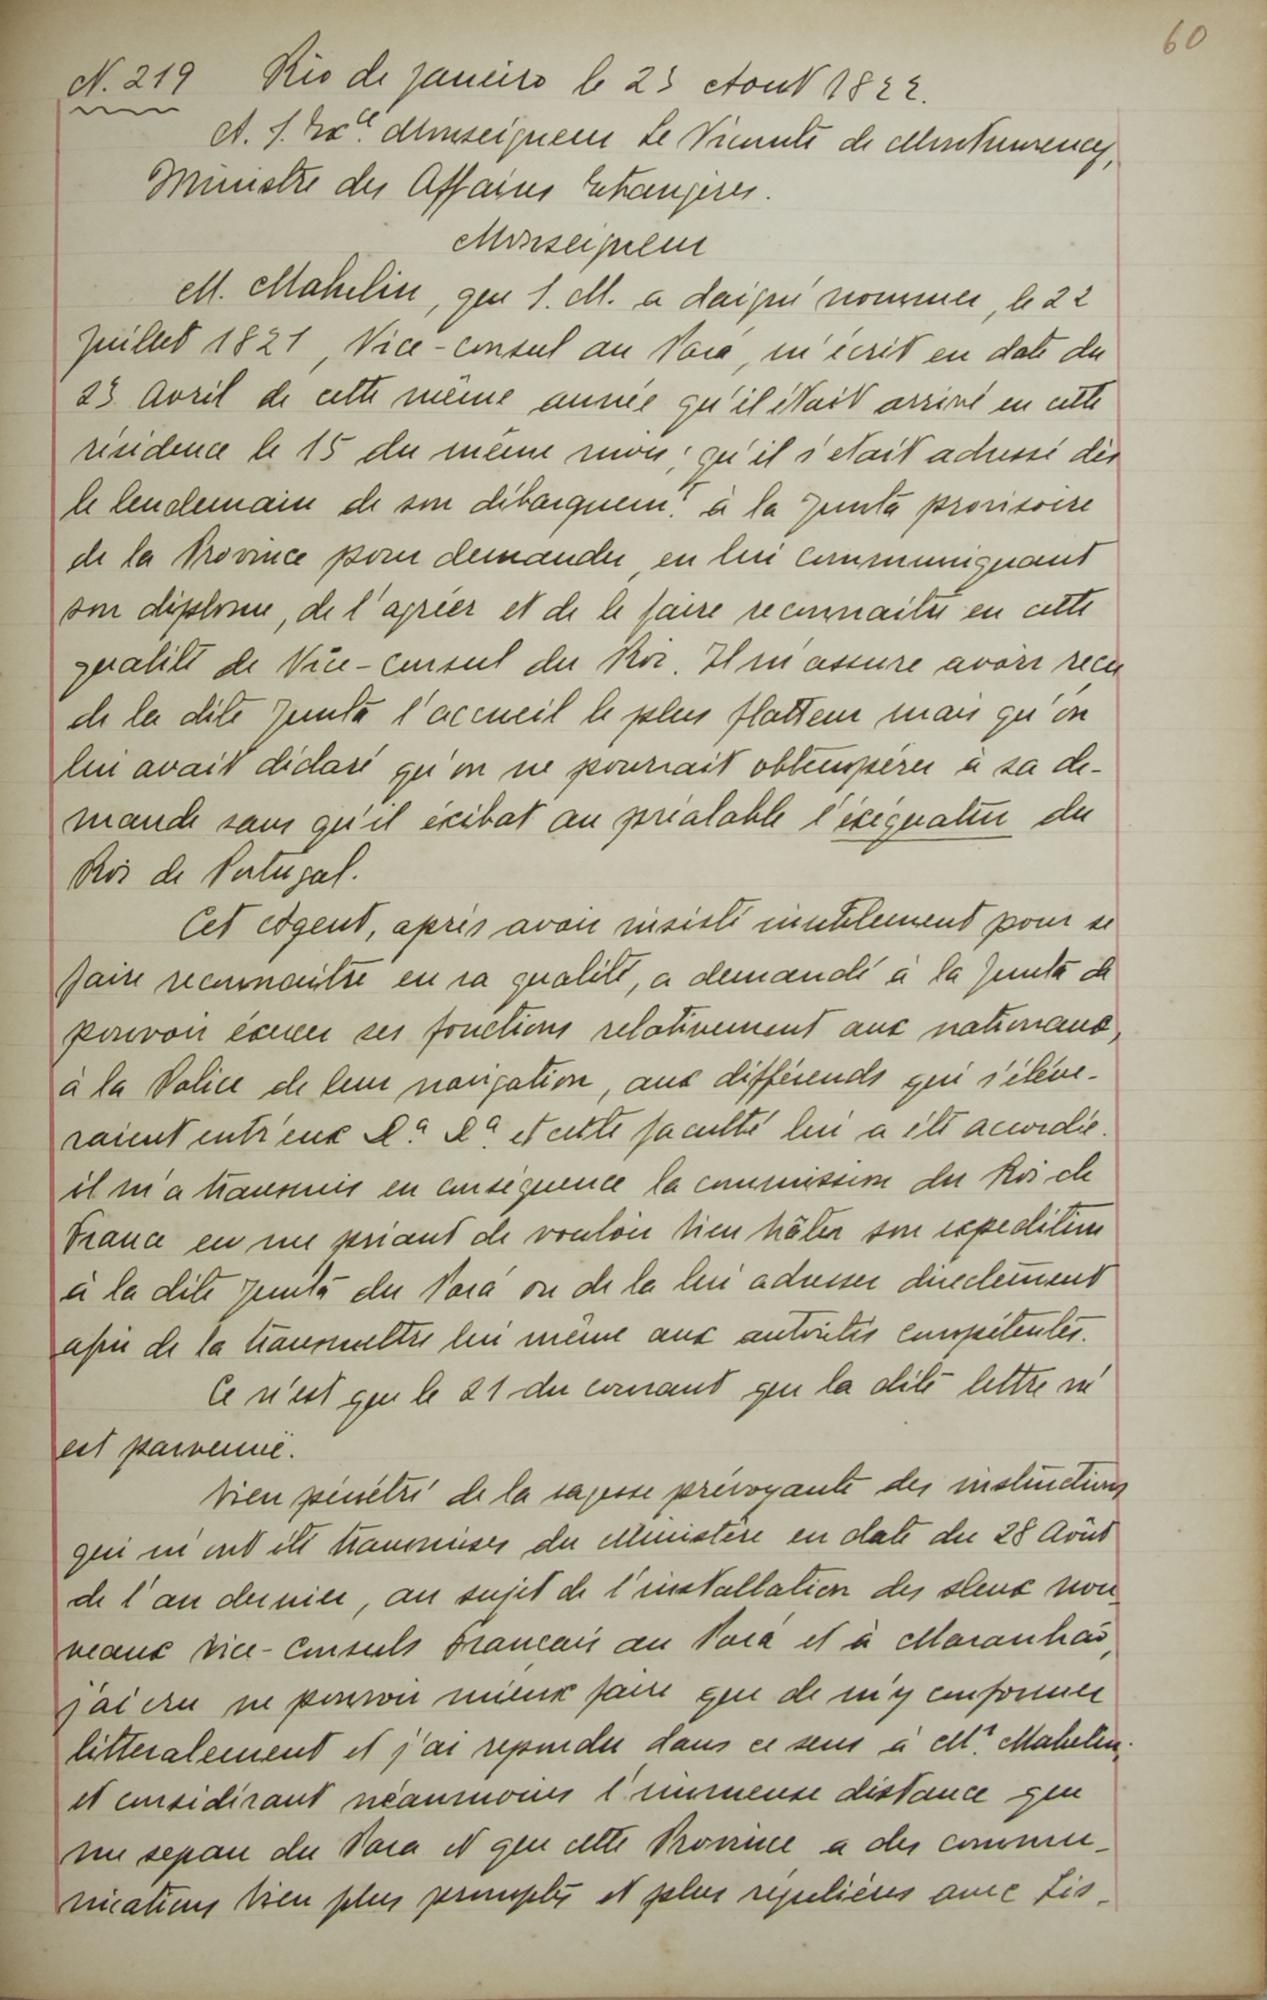 60
N. 219 Rio de Janeiro le 23 Aout 1822.
A. S. Exce. Monseigneur Le Vicomte de Montmorency,
Ministre des Affaires Etrangères.
Monseigneur
M. Mahelin, que S. M. a daigné nommer, le 22
Juillet 1821, Vice-consul au Pará, m'écrit en date du
23 Avril de cette même année qu'il était arrivé en cette
résidence le 15 du même mois; qu'il s'etait adressé dès
le lendemain de son débarquemt. à la Junta provisoire
de la Province pour demander, en lui communiquant
son diplome, de l'agréer et de le faire reconnaitre en cette
qualité de Vice-consul du Roi. Il m'assure avoir reçu
de la dite Junta l'accueil le plus flatteur mais qu'on
lui avait déclaré qu'on ne pourrait obtempérer à sa de-
mande sans qu'il éxibat au préalable l'éxéquatur du
Roi de Portugal.
Cet Agent, après avoir insisté inutilement pour se
faire reconnaitre en sa qualité, a demandé à la Junta de
pouvoir éxercer ses fonctions relativement aux nationaux,
à la Police de leur navigation, aux différends qui s'éléve-
raient entr'eux &a. &a. et cette faculté lui a été accordée.
il m'a transmis en conséquence la commission du Roi de
France en me priant de vouloir bien hâter son expedition
à la dite Junta du Pará ou de la lui adresser directement
afin de la transmettre lui même aux autorités compétentes.
Ce n'est que le 21 du courant que la dite lettre m'
est parvenue.
Bien pénétré de la sagesse prévoyante des instructions
qui m'ont été transmises du Ministère en date du 28 Août
de l'an dernier, au sujet de l'installation des deux nou-
veaux Vice-Consuls Francais au Pará et à Maranhaõ,
j'ai cru ne pouvoir mieux faire que de m'y conformer
litteralement et j'ai repondu dans ce sens à Mr. Mahelin;
et considérant néanmoins l'immense distance qui
me separe du Para et que cette Province a des commu-
nications bien plus promptes et plus régulières avec Lis-